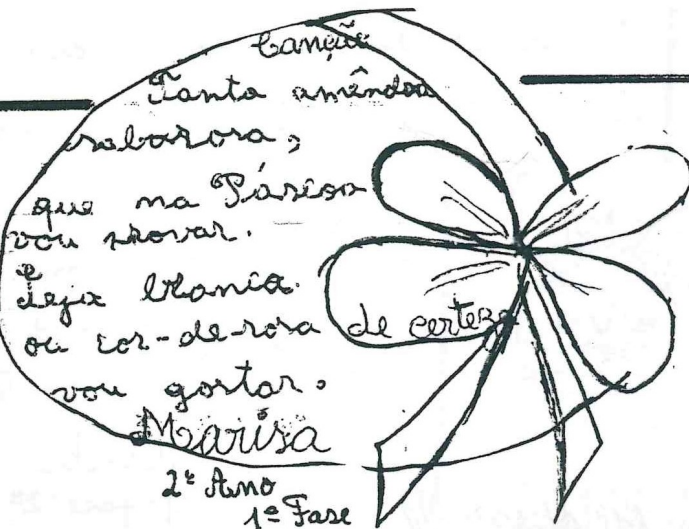 Canção
Tanta amêndoa
saborosa,
que na Páscoa
vou provar.
Seja branca
ou cor-de-rosa de certeza
vou gostar.
Marisa
2º Ano
1ª Fase